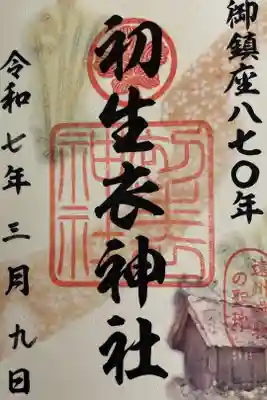 御鎮座八七〇年
初生衣神社
令和七年三月九日
初生衣神社